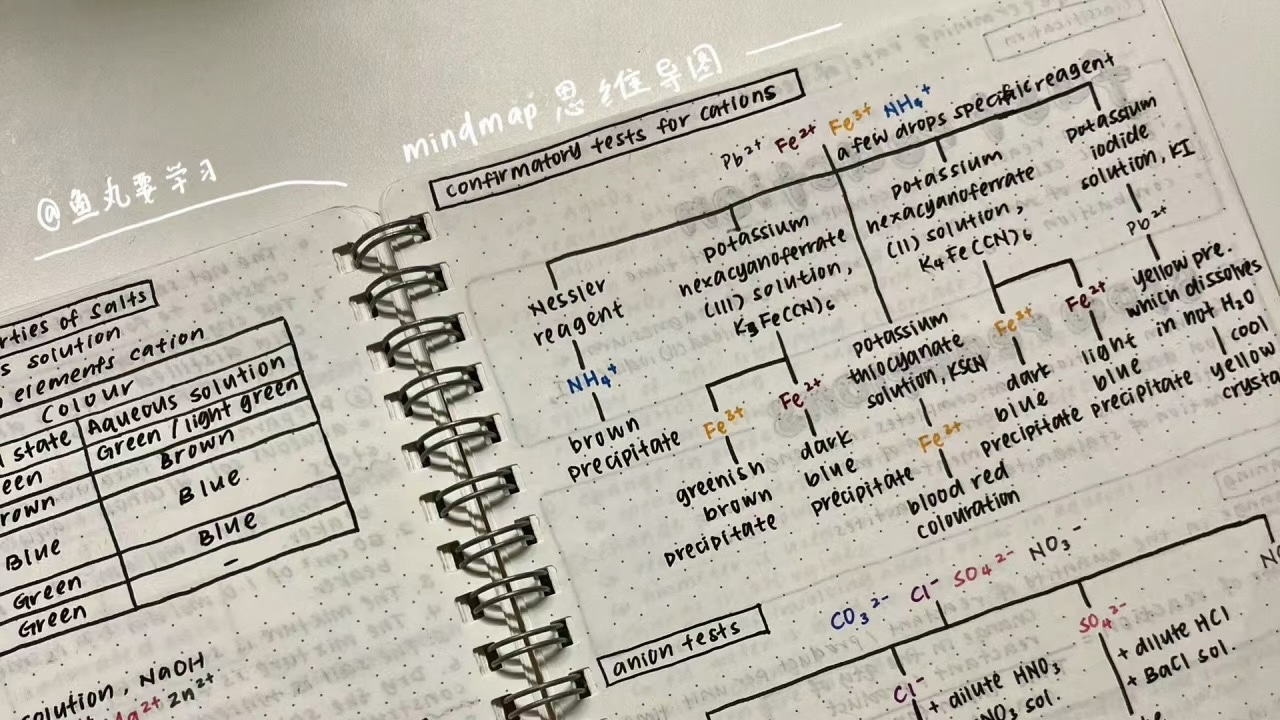 mindmap 思维导图
@鱼丸要学习
rties of salts
s solution
elements cation
Colour
state
Aqueous solution
een
Green / light green
rown
Brown
Blue
Blue
Blue
Green
-
Green
solution, NaOH
2+ Zn²⁺
confirmatory tests for cations
Pb²⁺ Fe²⁺ Fe³⁺ NH₄⁺
a few drops specific reagent
Nessler
reagent
NH₄⁺
brown
precipitate
potassium
hexacyanoferrate
(III) solution,
K₃Fe(CN)₆
Fe³⁺
greenish
brown
precipitate
Fe²⁺
dark
blue
precipitate
potassium
thiocyanate
solution, KSCN
Fe³⁺
blood red
colouration
potassium
hexacyanoferrate
(II) solution,
K₄Fe(CN)₆
Fe³⁺
dark
blue
precipitate
Fe²⁺
light
blue
precipitate
potassium
iodide
solution, KI
Pb²⁺
yellow pre.
which dissolves
in hot H₂O
cool
yellow
crysta
anion tests
CO₃²⁻ Cl⁻ SO₄²⁻ NO₃⁻
Cl⁻
+ dilute HNO₃
NO₃ sol.
SO₄²⁻
+ dilute HCl
+ BaCl sol.